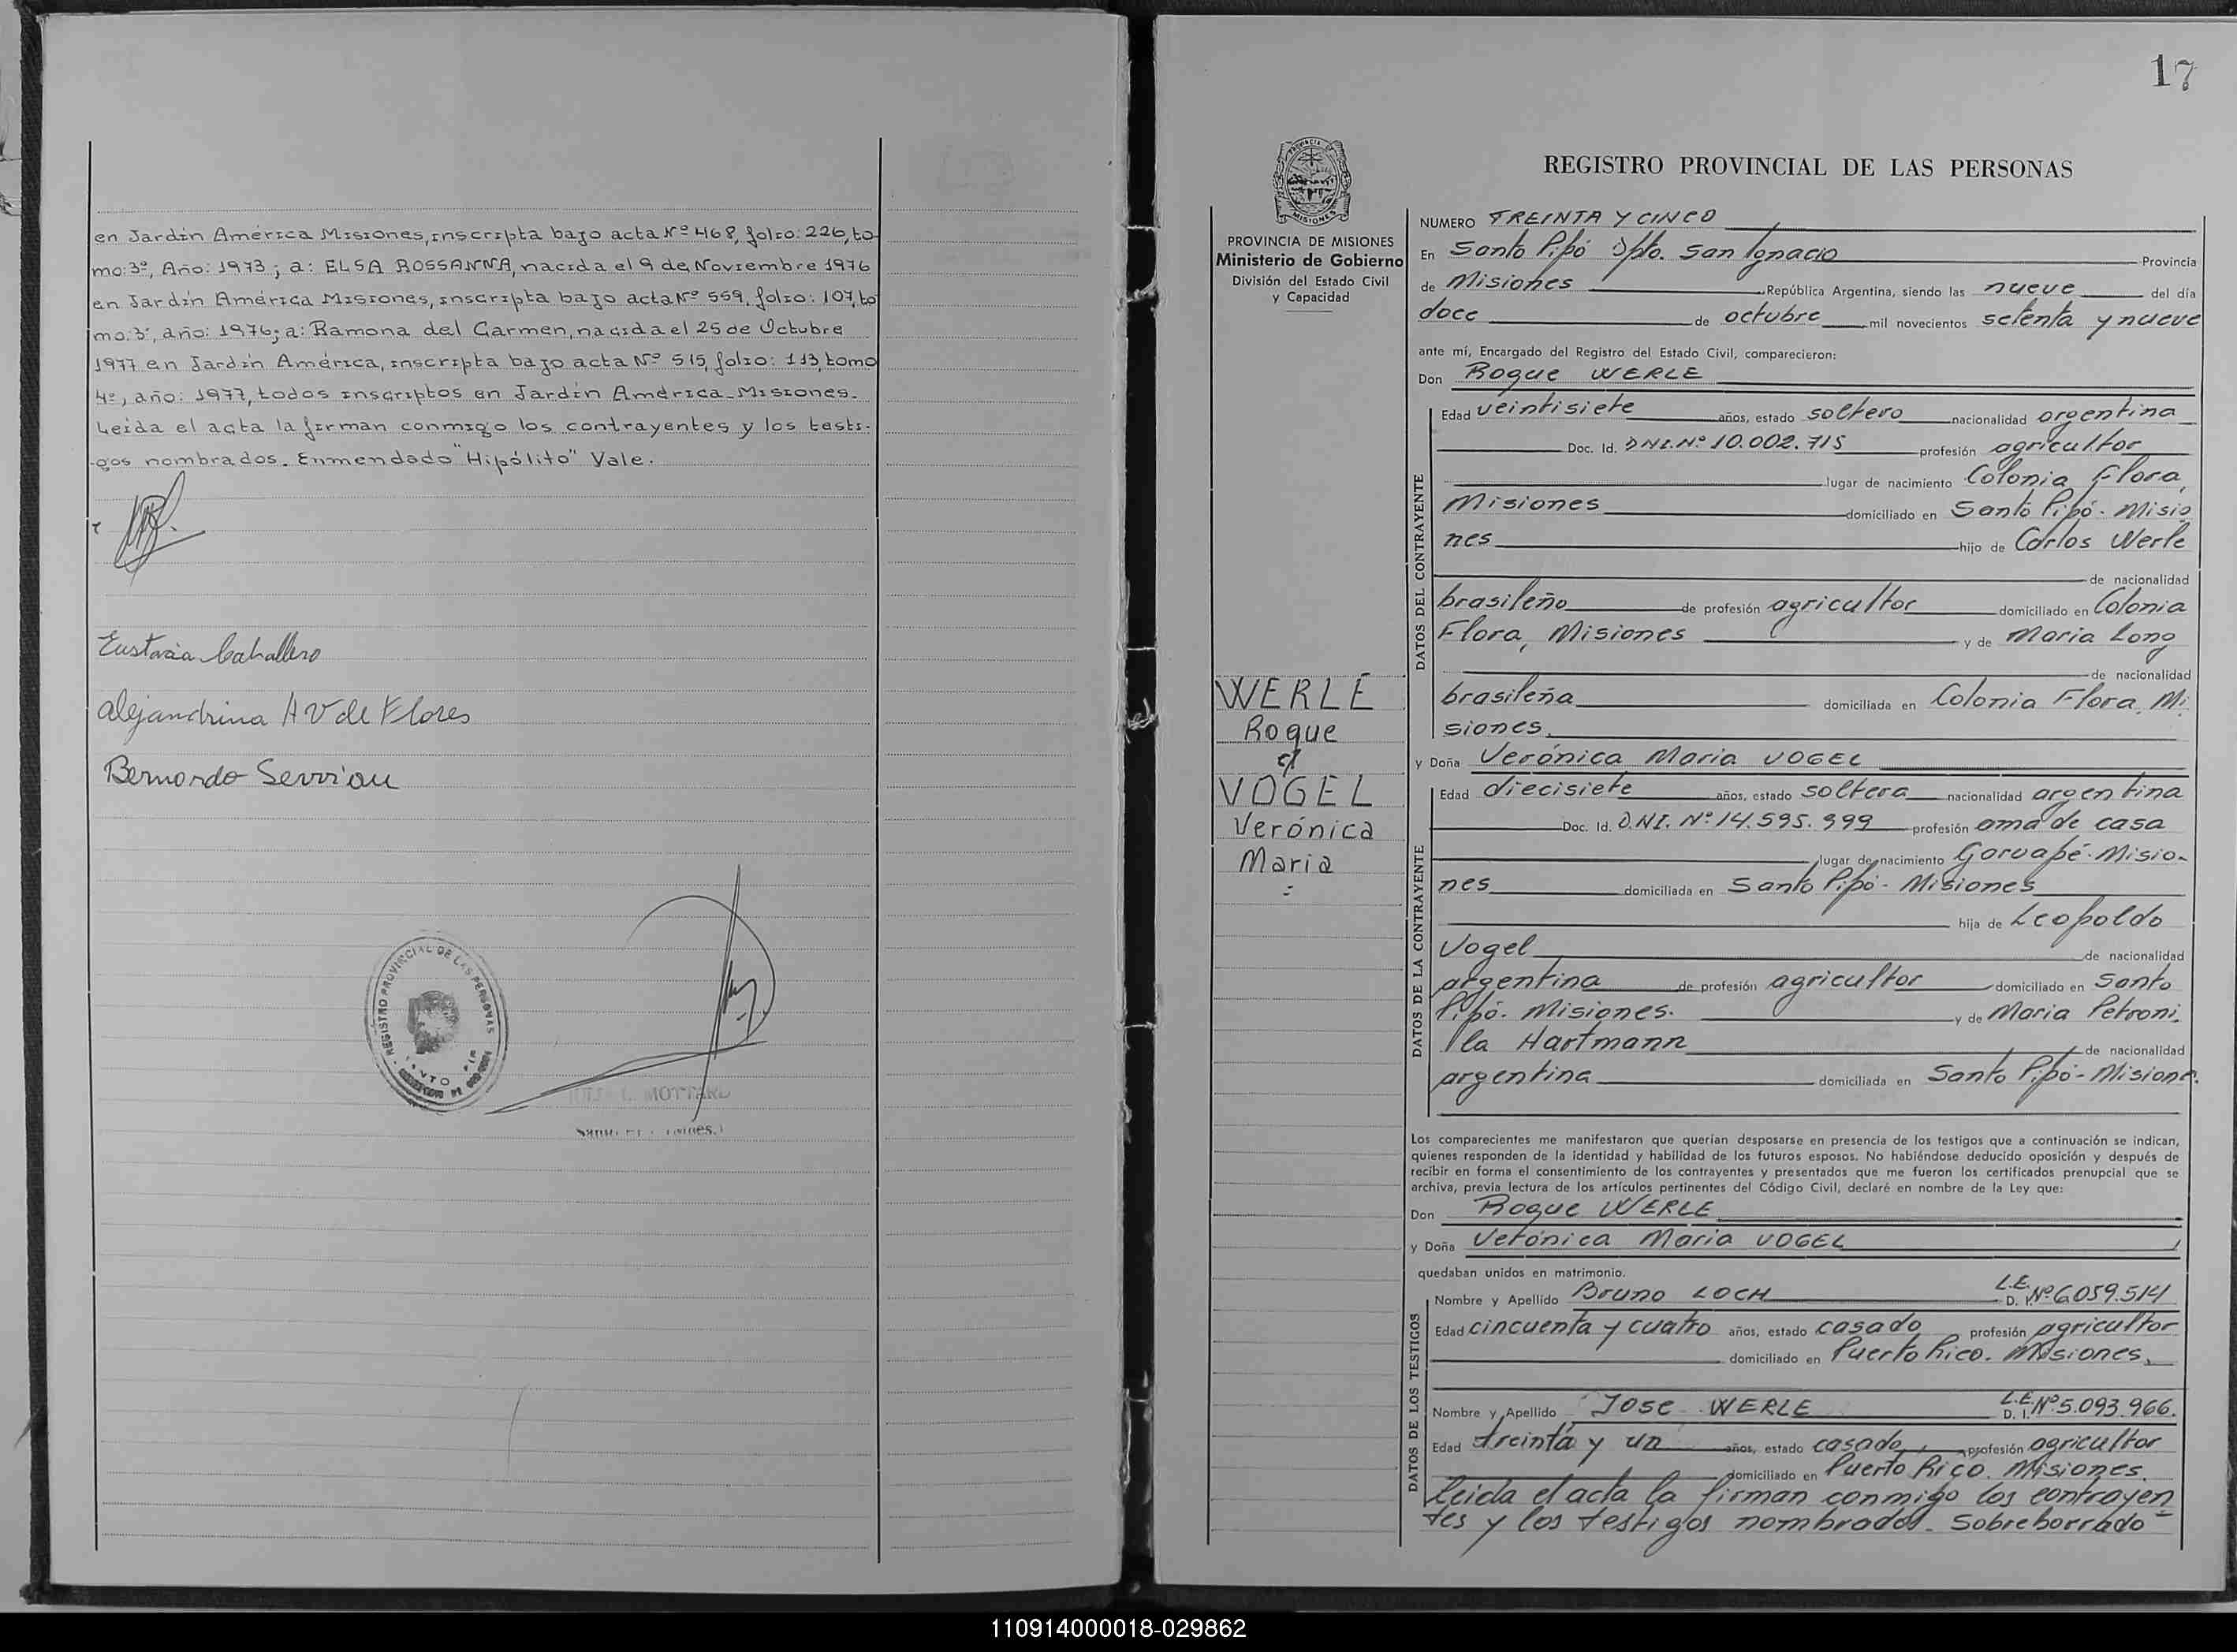 en Jardín América Misiones, inscripta bajo acta Nº 468, folio: 226, to-
mo: 3º, Año: 1973; a: ELSA ROSSANNA, nacida el 9 de Noviembre 1976
en Jardín América Misiones, inscripta bajo acta Nº 559, folio: 107, to
mo: 3º, año: 1976; a: Ramona del Carmen, nacida el 25 de Octubre
1977 en Jardín América, inscripta bajo acta Nº 515, folio: 113, tomo
4º, año: 1977, todos inscriptos en Jardín América-Misiones.
Leída el acta la firman conmigo los contrayentes y los testi-
gos nombrados. Enmendado "Hipólito" Vale.
Eustacia Caballero
Alejandrina A V de Flores
Bernardo Servian
REGISTRO PROVINCIAL DE LAS PERSONAS
MOTTARD
17
PROVINCIA DE MISIONES
Ministerio de Gobierno
División del Estado Civil
y Capacidad
WERLE
Roque
c/
VOGEL
Verónica
Maria
REGISTRO PROVINCIAL DE LAS PERSONAS
NUMERO TREINTA Y CINCO
En Santo Pipó Dpto. San Ignacio Provincia
de Misiones República Argentina, siendo las nueve del día
doce de octubre mil novecientos setenta y nueve
ante mí, Encargado del Registro del Estado Civil, comparecieron:
Don Roque WERLE
DATOS DEL CONTRAYENTE
Edad veintisiete años, estado soltero nacionalidad argentina
Doc. Id. DNI. Nº 10.002.715 profesión agricultor
lugar de nacimiento Colonia Flora,
Misiones domiciliado en Santo Pipó - Misio
nes hijo de Carlos Werle
de nacionalidad
brasileño de profesión agricultor domiciliado en Colonia
Flora, Misiones y de Maria Long
de nacionalidad
brasileña domiciliada en Colonia Flora, Mi
siones.
y Doña Verónica Maria VOGEL
DATOS DE LA CONTRAYENTE
Edad diecisiete años, estado soltera nacionalidad argentina
Doc. Id. D.N.I. Nº 14.595.999 profesión ama de casa
lugar de nacimiento Garuapé - Misio-
nes domiciliada en Santo Pipó - Misiones
hija de Leopoldo
Vogel de nacionalidad
argentina de profesión agricultor domiciliado en Santo
Pipó - Misiones. y de Maria Petroni.
la Hartmann de nacionalidad
argentina domiciliada en Santo Pipó - Misiones.
Los comparecientes me manifestaron que querían desposarse en presencia de los testigos que a continuación se indican,
quienes responden de la identidad y habilidad de los futuros esposos. No habiéndose deducido oposición y después de
recibir en forma el consentimiento de los contrayentes y presentados que me fueron los certificados prenupcial que se
archiva, previa lectura de los artículos pertinentes del Código Civil, declaré en nombre de la Ley que:
Don Roque WERLE
y Doña Verónica Maria VOGEL
quedaban unidos en matrimonio.
DATOS DE LOS TESTIGOS
Nombre y Apellido Bruno LOCH L.E. D. I. Nº 6.059.514
Edad cincuenta y cuatro años, estado casado profesión agricultor
domiciliado en Puerto Rico. Misiones.
Nombre y Apellido Jose WERLE L.E. D. I. Nº 5.093.966.
Edad treinta y un años, estado casado profesión agricultor
domiciliado en Puerto Rico. Misiones.
Leida el acta la firman conmigo los contrayen
tes y los testigos nombrados. Sobreborrado
110914000018-029862